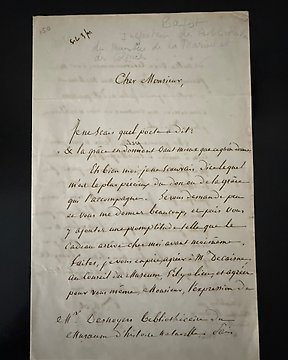 150
4375
Bajot
Inspecteur des Bibliothèques
du Ministère de la Marine et
des Colonies
Cher Monsieur,
Je ne sais quel poete a dit:
& la grace en donnant vaut mieux que ce qu'on donne
Eh bien moi, je ne saurais dire lequel
m'est le plus précieux du don ou de la grace
qui l'accompagne. Je vous demande peu
& vous me donnez beaucoup, et puis vous
y ajoutez une promptitude telle que le
Cadeau arrive chez moi avant moi-même.
Faites, je vous en prie agréer à M. Decaisne,
au Conseil du Museum, s'il y a lieu, et agréez
pour vous même, Monsieur, l'expression de
Mr Desnoyers bibliothécaire du
Museum d'histoire naturelle